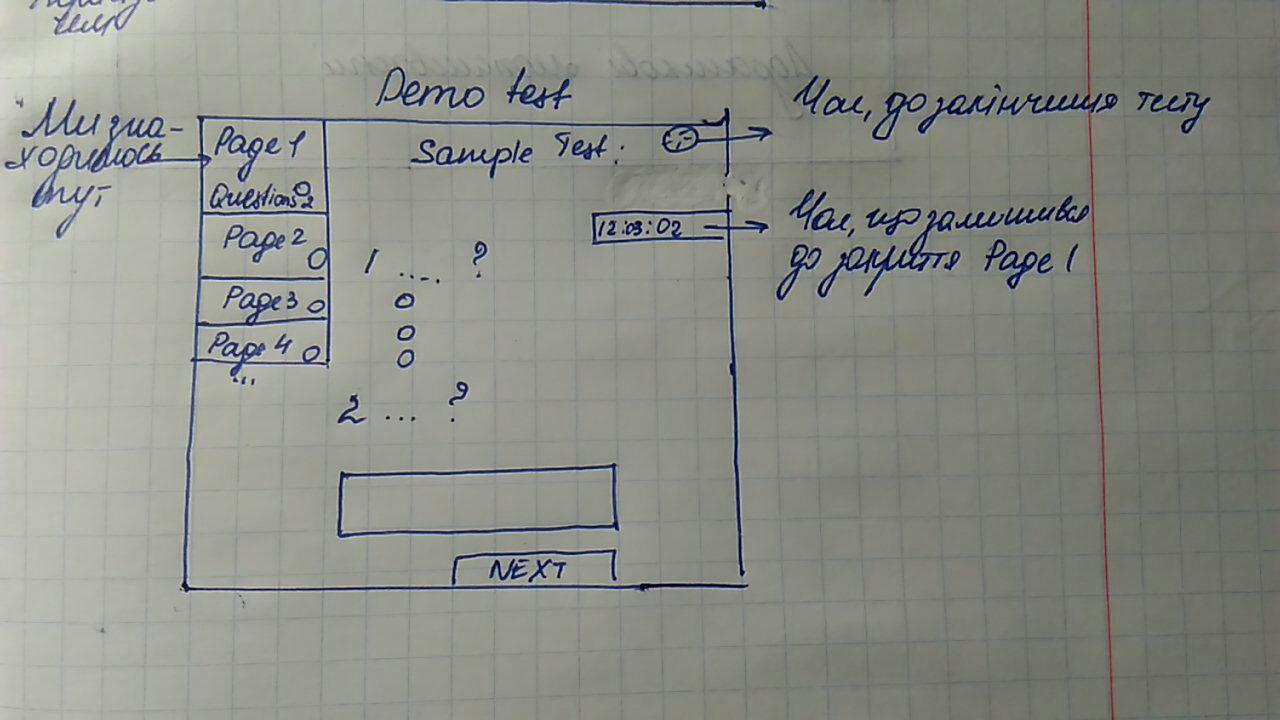 Demo test
Ми зна-
ходимось
тут
Page 1
Questions 2
Page 2
Page 3
Page 4
...
Sample Test:
12:03:02
1 .... ?
2 ... ?
NEXT
Час, до закінчення тесту
Час, що залишився
до закриття Page 1